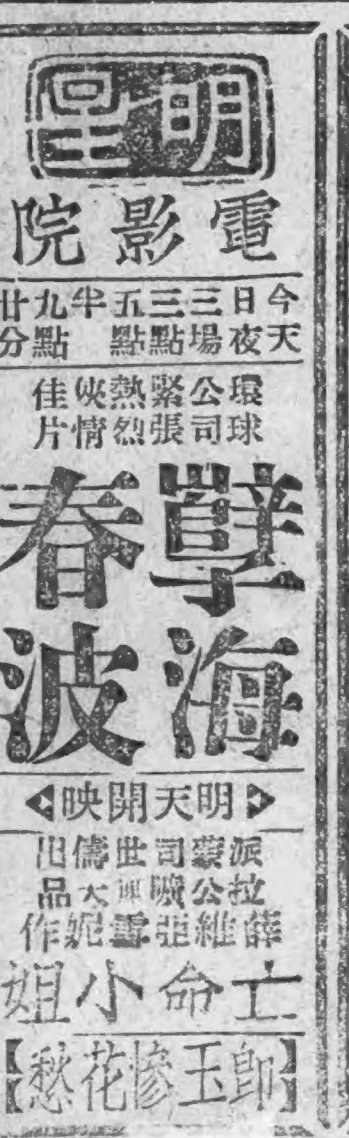 明星
電影院
今天日夜三場三點五點半九點廿分
環球公司緊張熱烈俠情佳片
孽海
春波
明天開映
派拉蒙公司曠世儔大出品
薛維亞雪妮作
亡命小姐
【即玉慘花愁】